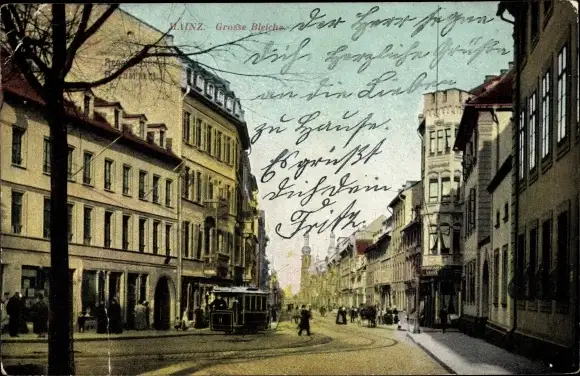 MAINZ. Grosse Bleiche.
Der Herr segne
Dich Herzliche Grüße
an die Lieben
zu Hause.
Es grüßt
Dich Dein
Fritz